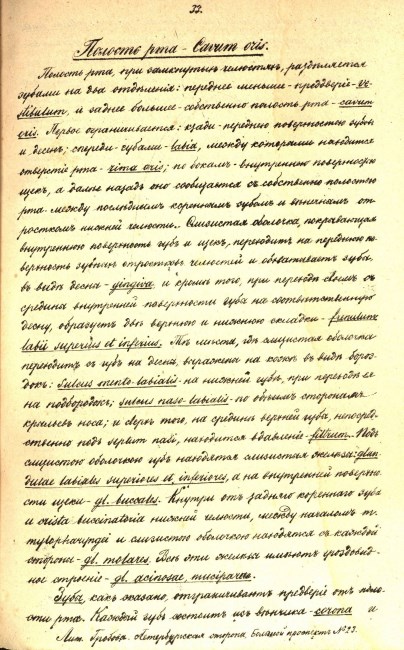 33.
Полость рта - Cavum oris.
Полость рта, при замкнутыхъ челюстяхъ, раздѣляется
зубами на два отдѣленія: переднее меньшее - преддверіе - ve-
stibulum, и заднее большее - собственно полость рта - cavum
oris. Первое ограничивается: сзади - переднею поверхностью зубовъ
и десенъ; спереди - губами - labia, между которыми находится
отверстіе рта - rima oris; по бокамъ - внутреннею поверхностью
щекъ, а далѣе назадъ оно сообщается съ собственно полостью
рта между послѣднимъ кореннымъ зубомъ и вѣнечнымъ от-
росткомъ нижней челюсти. Слизистая оболочка, покрывающая
внутреннюю поверхность губъ и щекъ, переходитъ на переднюю по-
верхность зубныхъ отростковъ челюстей и обхватываетъ зубы,
въ видѣ десны - gingiva, и кромѣ того, при переходѣ своемъ съ
средины внутренней поверхности губы на соотвѣтственную
десну, образуетъ двѣ верхнюю и нижнюю складки - frenulum
labii superius et inferius. Тѣ мѣста, гдѣ слизистая оболочка
переходитъ съ губъ на десна, выражены на кожѣ въ видѣ бороз-
докъ: sulcus mento-labialis - на нижней губѣ, при переходѣ ея
на подбородокъ; sulcus naso-labialis - по обѣимъ сторонамъ
крыльевъ носа; и сверхъ того, на срединѣ верхней губы, непосред-
ственно подъ septum nasi, находится вдавленіе - filtrum. Подъ
слизистою оболочкою губъ находятся слизистыя железы: glan-
dulae labiales superiores et inferiores, а на внутренней поверхно-
сти щеки - gl. buccales. Кнутри отъ задняго коренного зуба
и crista buccinatoria нижней челюсти, между началомъ m.
и слизистою оболочкою находятся съ каждой
стороны - gl. molares. Всѣ эти железы имѣютъ гроздовид-
ное строеніе - gl. acinosae, muciparae.
Зубы, какъ сказано, отграничиваютъ преддверіе отъ поло-
сти рта. Каждый зубъ состоитъ изъ вѣнчика - corona и
Лит. Гробова. Петербургская сторона, Большой проспектъ № 23.